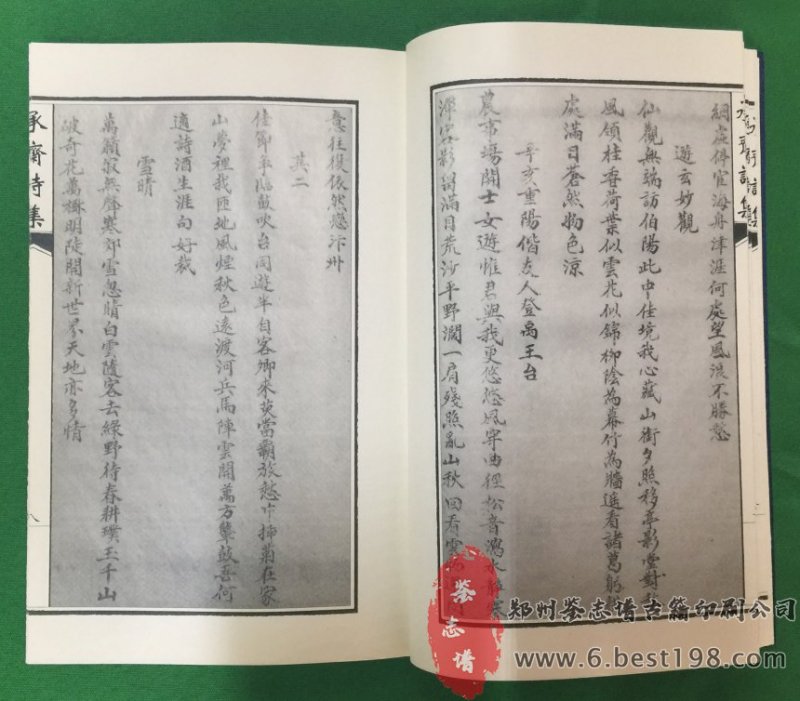 網虛停官海舟津涯何處望風浪不勝愁
遊玄妙觀
仙觀無端訪伯陽此中佳境我心藏山銜夕照移亭影
風領桂香荷葉似雲花似錦柳陰為幕竹為牆遥看諸葛躬
處滿目蒼然物色涼
辛亥重陽偕友人登禹王台
農市場開士女遊惟君與我更悠悠風穿曲徑松音瀉水
潭客影留滿目荒沙平野濶一肩殘照亂山秋回看雲
意往復依然戀汴州
其二
佳節爭臨鼓吹台同遊半自客鄉來萸當羈旅愁中插菊在家
山夢裡栽匝地風煙秋色遠渡河兵馬陣雲開萬方鞞鼓吾何
適詩酒生涯句好裁
雪晴
萬籟寂無聲寒郊雪忽晴白雲隨客去綠野待春耕璞玉千山
破奇花萬樹明陡開新世界天地亦多情
承齋詩集
八
鉴志谱
郑州鉴志谱古籍印刷公司
www.6.best198.com